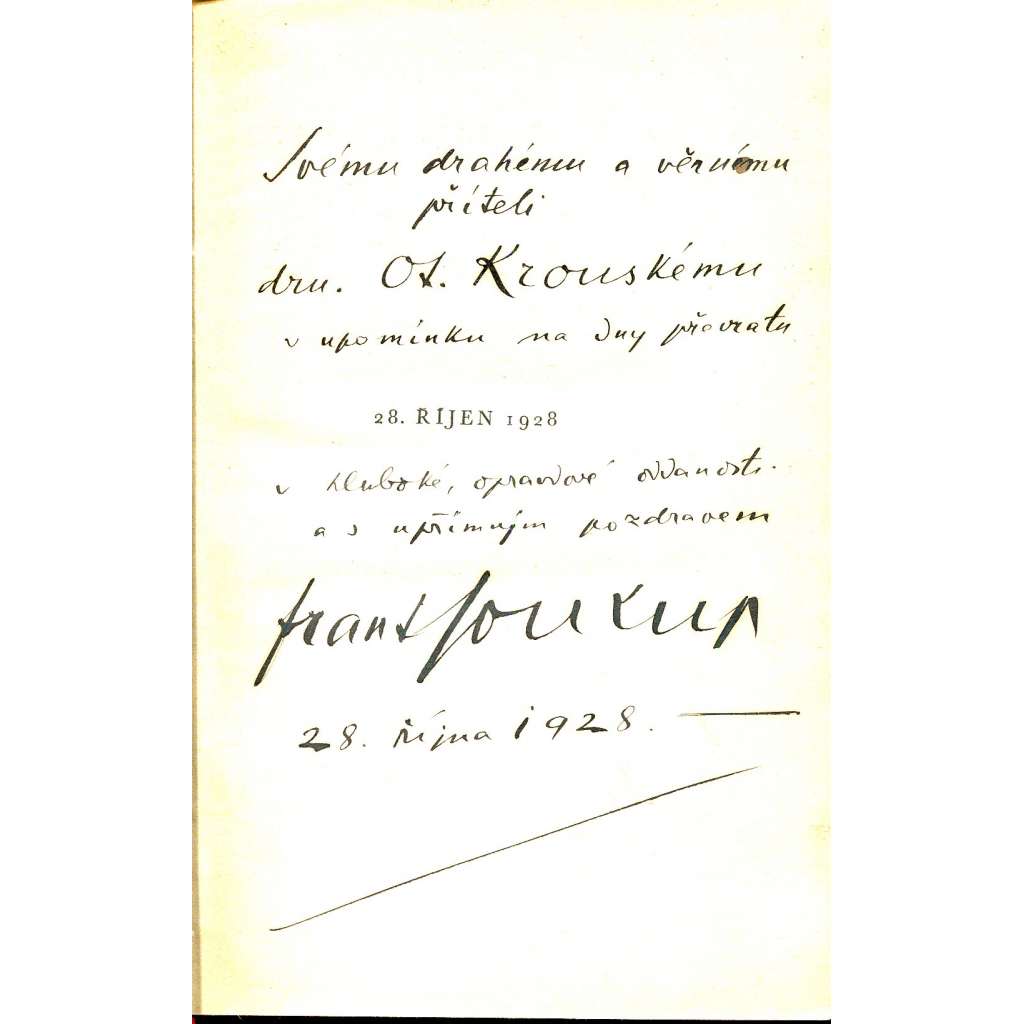 Svému drahému a věrnému
příteli
dru. Ot. Krouskému
v upomínku na dny převratu
28. ŘÍJEN 1928
v hluboké, opravdové oddanosti
a s upřímným pozdravem
Frant Soukup
28. října 1928.